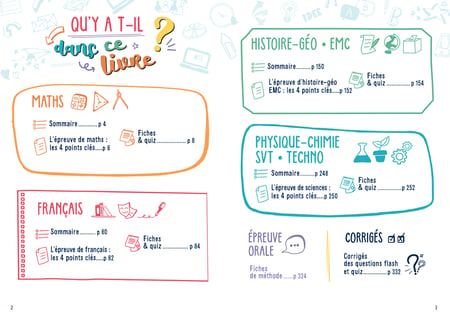 QU'Y A T-IL
dans ce
livre ?
MATHS
Sommaire............p 4
L'épreuve de maths :
les 4 points clés.....p 6
Fiches
& quiz ................p 8
FRANÇAIS
Sommaire ........ p 80
L'épreuve de français :
les 4 points clés.....p 82
Fiches
& quiz ............... p 84
HISTOIRE-GÉO • EMC
Sommaire.........p 150
L'épreuve d'histoire-géo
EMC : les 4 points clés...p 152
Fiches
& quiz ............p 154
PHYSIQUE-CHIMIE
SVT • TECHNO
Sommaire.........p 248
L'épreuve de sciences :
les 4 points clés....p 250
Fiches
& quiz ............p 252
ÉPREUVE
ORALE
Fiches
de méthode ......p 324
CORRIGÉS
Corrigés
des questions flash
et quiz............p 332
2